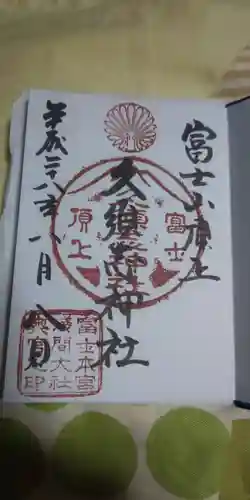 富士山頂上
久須志神社
平成二十八年八月八日
富士
頂上
富士本宮
浅間大社
奥宮印